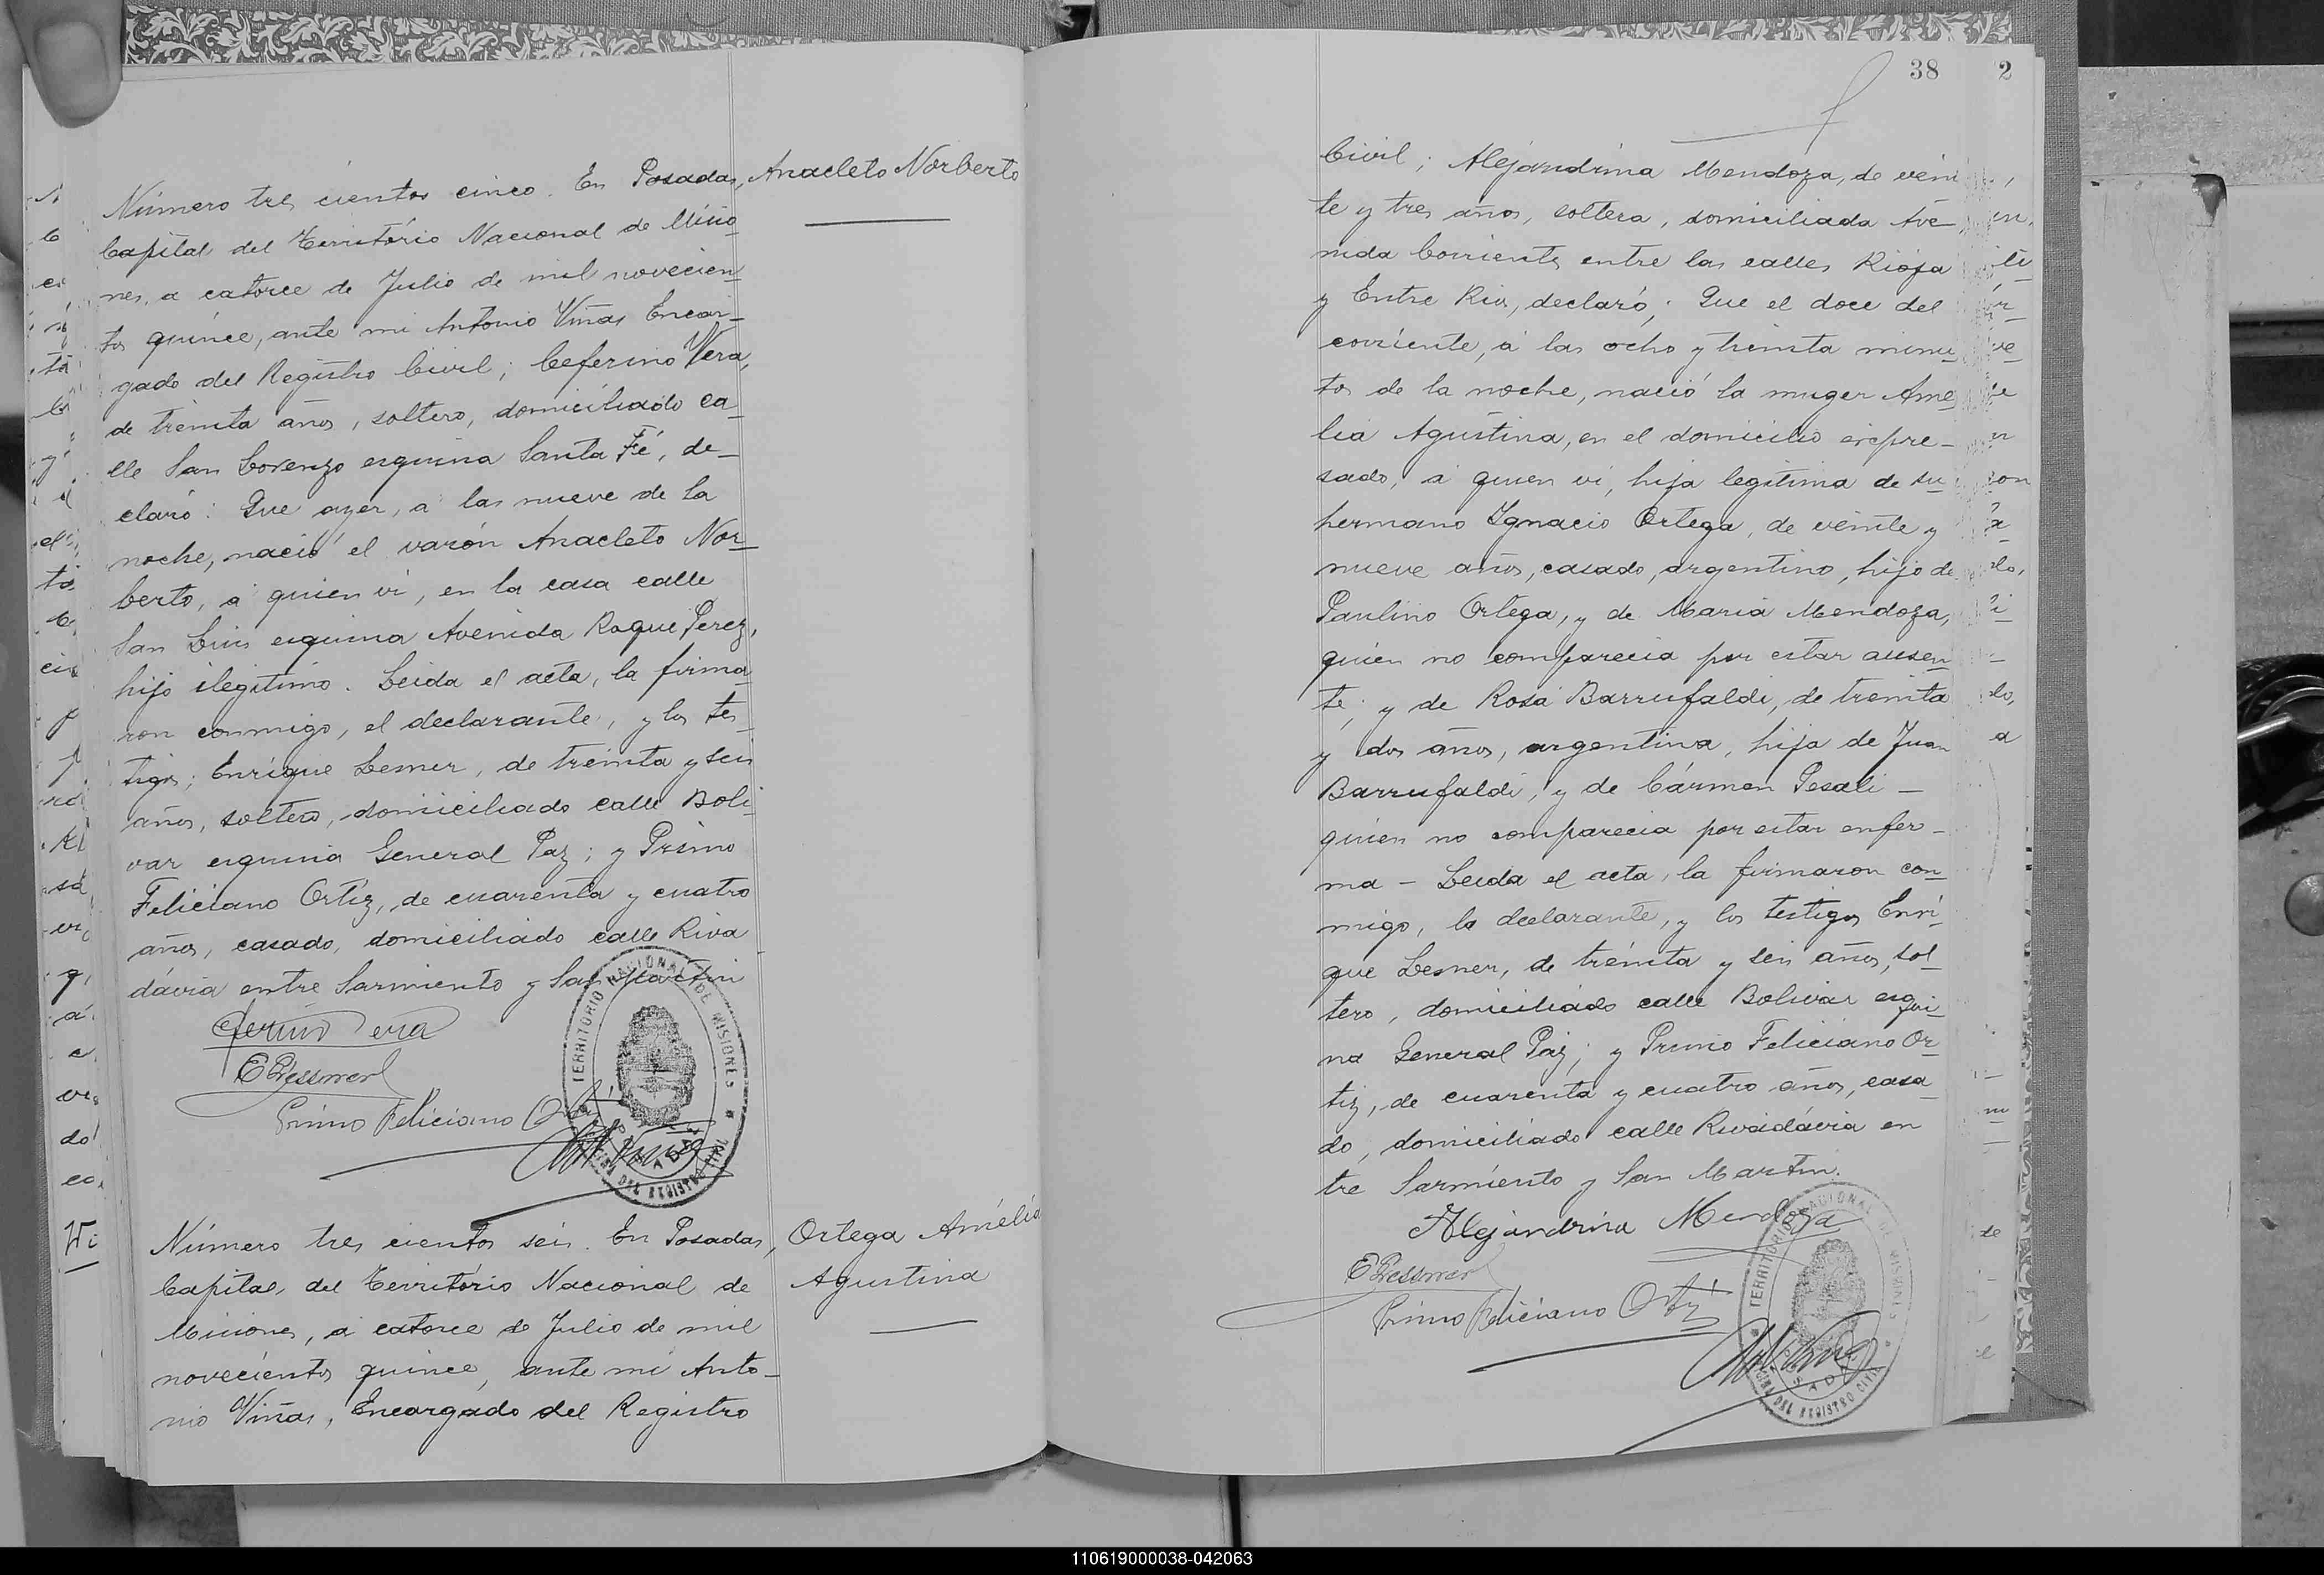 Número tres cientos cinco. En Posadas,
Capital del Território Nacional de Misio
nes, a catorce de Julio de mil novecien
tos quince, ante mi Antonio Viñas Encar-
gado del Registro Civil; Ceferino Vera,
de treinta años, soltero, domiciliado ca
lle San Lorenzo esquina Santa Fé, de-
claró: Que ayer, a las nueve de la
noche, nació el varón Anacleto Nor-
berto, á quien vi, en la casa calle
San Luis esquina Avenida Roque Perez,
hijo ilegitimo. Leida el acta, la firma
ron conmigo, el declarante, y los tes
tigos; Enrique Lesner, de treinta y seis
años, soltero, domiciliado calle Boli
var esquina General Paz; y Primo
Feliciano Ortiz, de cuarenta y cuatro
años, casado, domiciliado calle Riva
dávia entre Sarmiento y San Martin
Anacleto Norberto
Primo Feliciano Ortiz
TERRITORIO NACIONAL DE MISIONES
POSADAS
OFICINA DEL REGISTRO CIVIL
Número tres cientos seis. En Posadas,
Capital del Território Nacional de
Misiones, á catorce de Julio de mil
novecientos quince, ante mi Anto-
nio Viñas, Encargado del Registro
Ortega Amélia
Agustina
38
2
Civil; Alejandrina Mendoza, de vein
te y tres años, soltera, domiciliada Ave
nida Corrientes entre las calles Rioja
y Entre Rios, declaró; Que el doce del
corriente, á las ocho y treinta minu
tos de la noche, nació la muger Ame
lia Agustina, en el domicilio expre-
sado, á quien vi, hija legitima de su
hermano Ignacio Ortega, de veinte y
nueve años, casado, argentino, hijo de
Paulino Ortega, y de Maria Mendoza,
quien no comparecia por estar ausen
te; y de Rosa Barrufaldi, de treinta
y dos años, argentina, hija de Juan
Barrufaldi, y de Cármen Pesali -
quien no comparecia por estar enfer-
ma - Leida el acta, la firmaron con
migo, la declarante, y los testigos Enri
que Lesner, de treinta y seis años, sol
tero, domiciliado calle Bolivar esqui
na General Paz; y Primo Feliciano Or
tiz, de cuarenta y cuatro años, casa
do, domiciliado calle Rivadávia en
tre Sarmiento y San Martin.
Alejandrina Mendoza
Primo Feliciano Ortiz
TERRITORIO NACIONAL DE MISIONES
POSADAS
OFICINA DEL REGISTRO CIVIL
110619000038-042063